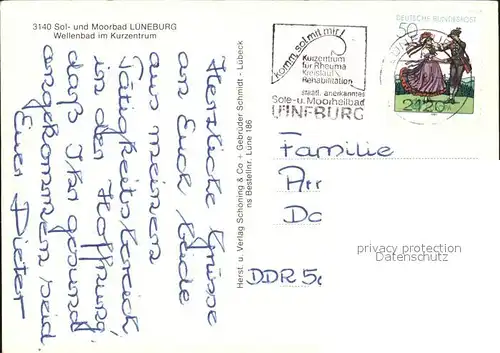 3140 Sol- und Moorbad LÜNEBURG
Wellenbad im Kurzentrum
Herzliche Grüsse
an Euch beide
aus meinem
Tätigkeitsbereich
in der Hoffnung,
daß Ihr gesund
angekommen seid.
Euer Dieter
Herst. u. Verlag Schöning & Co + Gebrüder Schmidt - Lübeck
ns Bestellnr. Lüne 186
komm, sol mit mir!
Kurzentrum
für Rheuma
Kreislauf
Rehabilitation
staatl. anerkanntes
Sole- u. Moorheilbad
LÜNEBURG
DEUTSCHE BUNDESPOST
50
2120
Familie
Arr
Do
DDR 5
privacy protection
Datenschutz